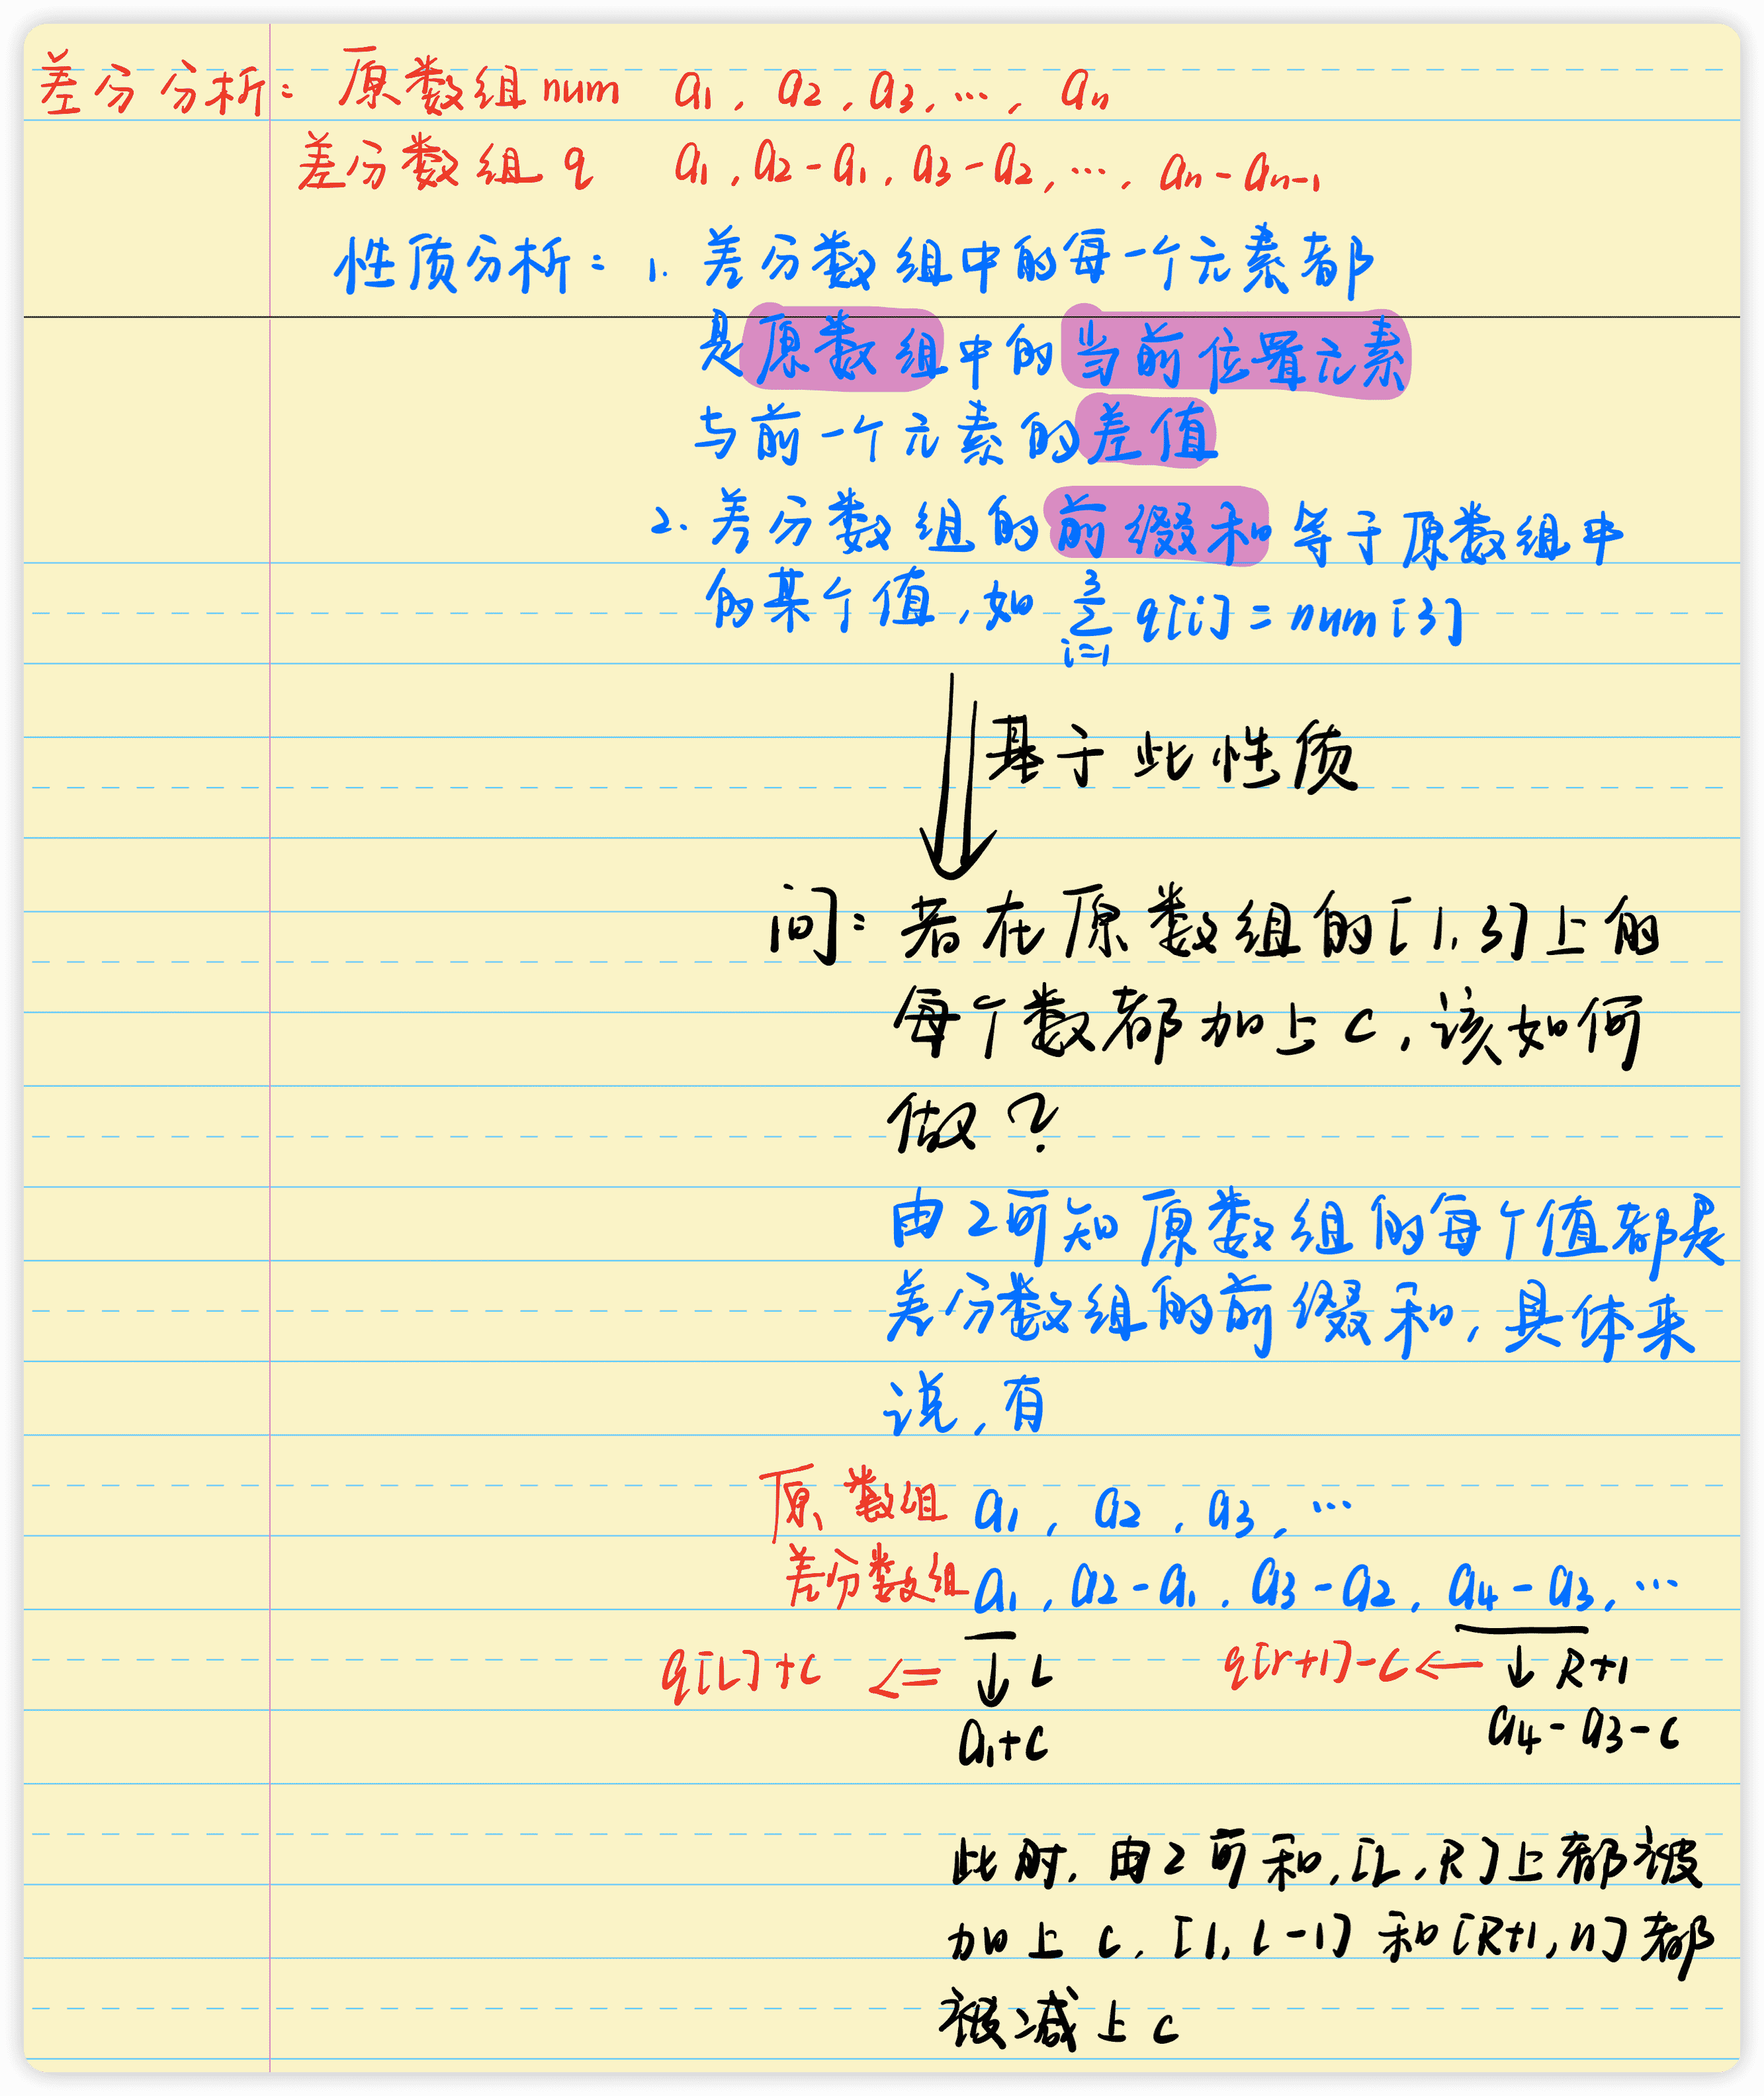 差分分析：原数组num a1, a2, a3, …, an
差分数组q a1, a2-a1, a3-a2, …, an-an-1
性质分析：1. 差分数组中的每一个元素都
是原数组中的当前位置元素
与前一个元素的差值
2. 差分数组的前缀和等于原数组中
的某个值,如 3∑i=1 q[i] = num[3]
基于此性质
问：若在原数组的[1,3]上的
每个数都加上c,该如何
做?
由2可知原数组的每个值都是
差分数组的前缀和,具体来
说,有
原数组 a1, a2, a3, …
差分数组 a1, a2-a1, a3-a2, a4-a3, …
q[L]+c <= ↓ L q[r+1]-c ← ↓ R+1
a1+c a4-a3-c
此时,由2可和,[L,R]上都被
加上c,[1,L-1]和[R+1,n]都
被减上c